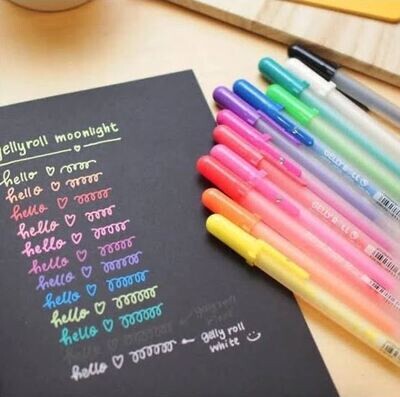 gellyroll moonlight
hello ♡
hello ♡
hello ♡
hello ♡
hello ♡
hello ♡
hello ♡
hello ♡
hello ♡
hello ♡
hello ♡
hello ♡ ← gelly roll
white
GELLY ROLL
GELLY ROLL